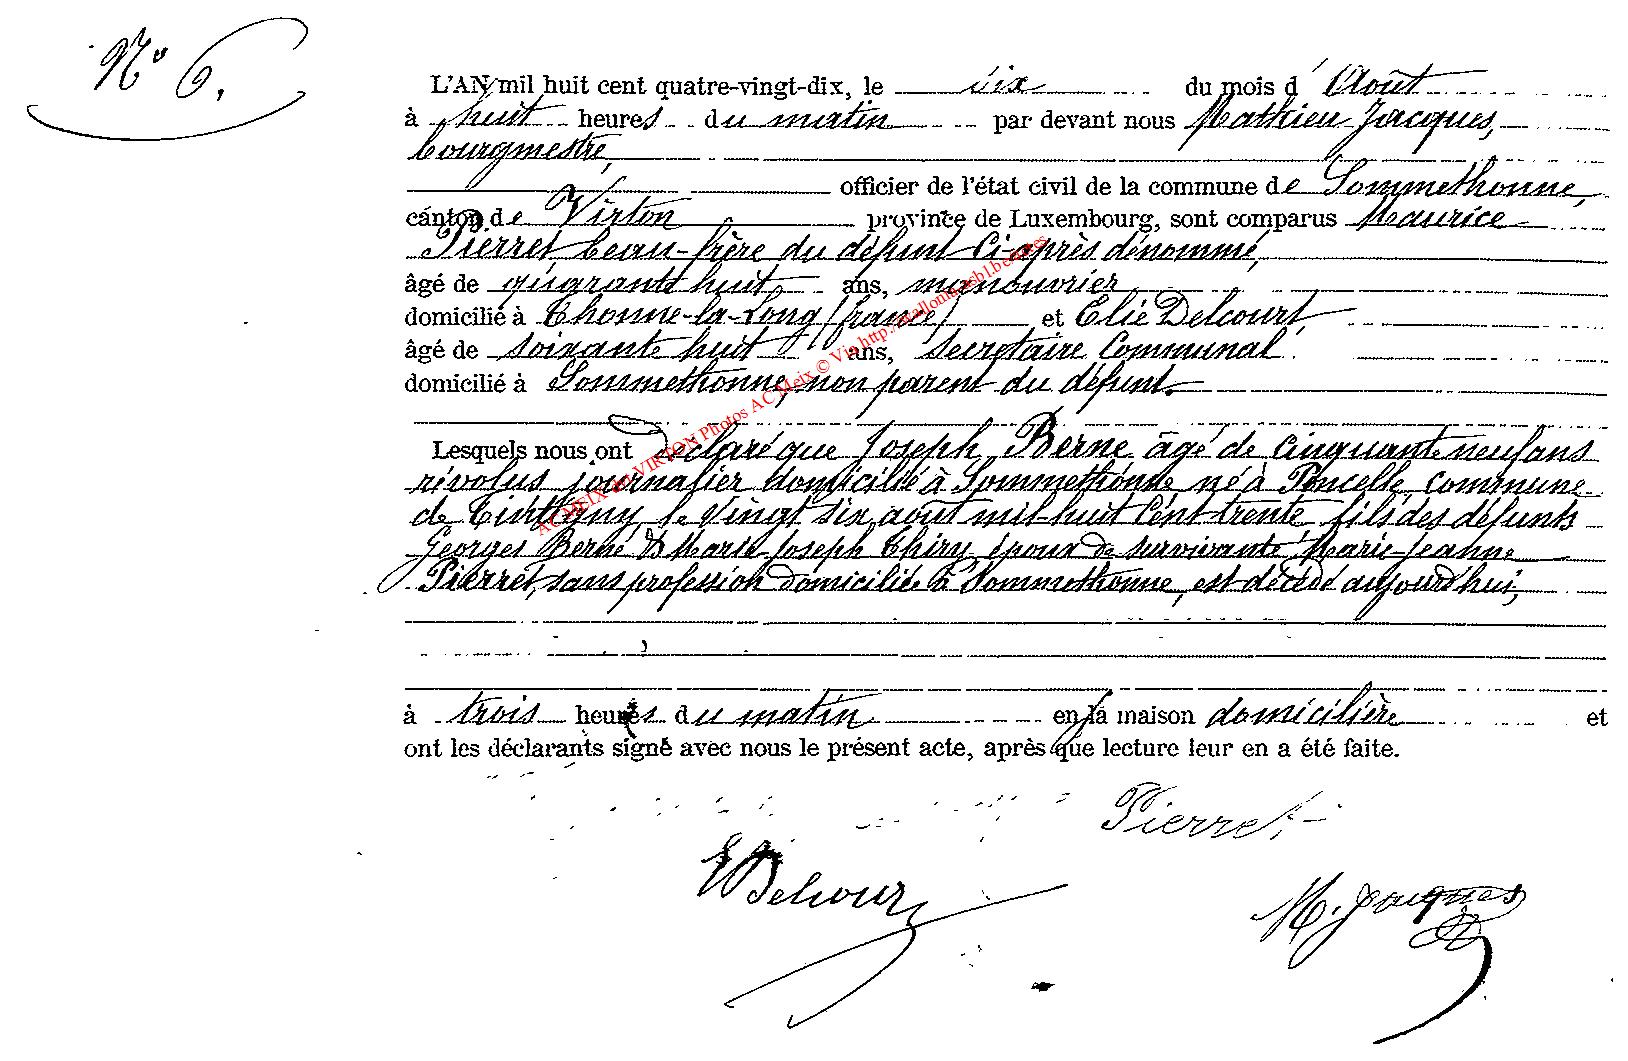 N° 6.
L'AN mil huit cent quatre-vingt-dix, le dix du mois d'Août
à huit heures du matin par devant nous Mathieu Jacques,
bourgmestre,
officier de l'état civil de la commune de Sommethonne,
canton de Virton province de Luxembourg, sont comparus Maurice
Pierret beau-frère du défunt ci-après dénommé,
âgé de quarante huit ans, manouvrier
domicilié à Thonne-la-Long (france) et Elie Delcourt,
âgé de soixante huit ans, secrétaire communal
domicilié à Sommethonne, non parent du défunt.
Lesquels nous ont déclaré que Joseph Berne âgé de cinquante neuf ans
révolus journalier domicilié à Sommethonne né à Poncelle, commune
de Tintigny, le vingt six août mil-huit cent trente fils des défunts
Georges Berne & Marie-Joseph Thiry, époux de survivante Marie-Jeanne
Pierret, sans profession domiciliée à Sommethonne, est décédé aujourd'hui,
à trois heures du matin en la maison domicilière et
ont les déclarants signé avec nous le présent acte, après que lecture leur en a été faite.
Pierret
E Delcourt
M. Jacques
AC MEIX dvt VIRTON Photos AC Meix © Via http://wallonia.asbl.be